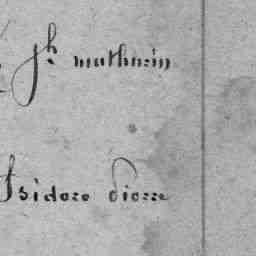 Jh mathurin
Isidore pierre